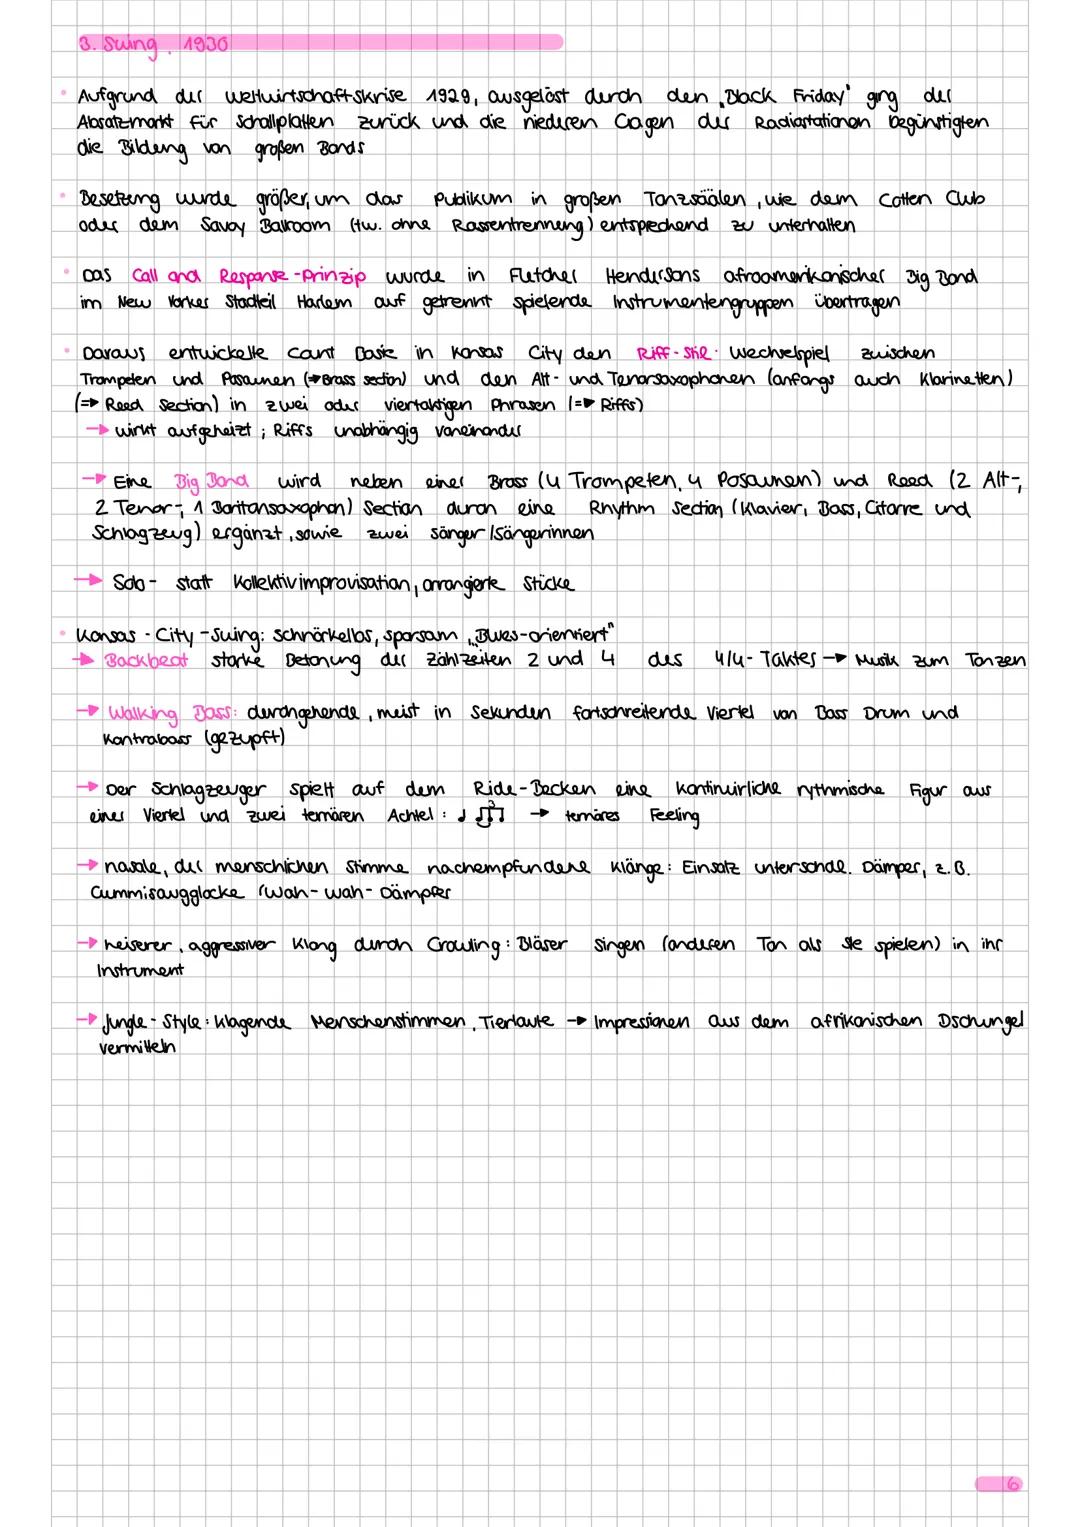 3. Swing. 1930
• Aufgrund der Weltwirtschaftskrise 1929, ausgelöst durch den „Black Friday" ging der
Absatzmarkt für Schallplatten zurück und die niederen Gagen der Radiostationen begünstigten
die Bildung von großen Bands
• Besetzung wurde größer, um das Publikum in großen Tanzsäälen, wie dem Cotten Club
oder dem Savoy Ballroom (tw. ohne Rassentrennung) entsprechend zu unterhalten
• Das Call and Response-Prinzip wurde in Fletcher Hendersons afroamerikanischer Big Band
im New Yorker Stadteil Harlem auf getrennt spielende Instrumentengruppen übertragen
• Daraus entwickelte Count Basie in Kansas City den Riff-Stil: Wechselspiel zwischen
Trompeten und Posaunen (⇒Brass section) und den Alt- und Tenorsaxophonen (anfangs auch Klarinetten)
(⇒ Reed Section) in zwei oder viertaktigen Phrasen (⇒ Riffs)
→ wirkt aufgeheizt; Riffs unabhängig voneinander
→ Eine Big Band wird neben einer Brass (4 Trompeten, 4 Posaunen) und Reed (2 Alt-,
2 Tenor-, 1 Baritonsaxophon) Section durch eine Rhythm Section (Klavier, Bass, Gitarre und
Schlagzeug) ergänzt, sowie zwei Sänger/Sängerinnen
→ Solo- statt Kollektivimprovisation, arrangierte Stücke
• Kansas-City-Swing: schnörkellos, sparsam „Blues-orientiert"
→ Backbeat starke Betonung der Zählzeiten 2 und 4 des 4/4-Taktes → Musik zum Tanzen
→ Walking Bass: durchgehende, meist in Sekunden fortschreitende Viertel von Bass Drum und
Kontrabass (gezupft)
→ Der Schlagzeuger spielt auf dem Ride-Becken eine kontinuirliche rytmische Figur aus
einer Viertel und zwei ternären Achtel: ♩ ♫ 3 → ternäres Feeling
→ nasale, der menschlichen Stimme nachempfundene Klänge: Einsatz unterschdl. Dämper, z.B.
Gummisaugglocke (Wah-wah-Dämpfer
→ heiserer, aggressiver Klang durch Growling: Bläser singen (anderen Ton als sie spielen) in ihr
Instrument
→ Jungle-Style: klagende Menschenstimmen, Tierlaute → Impressionen aus dem afrikanischen Dschungel
vermitteln
6